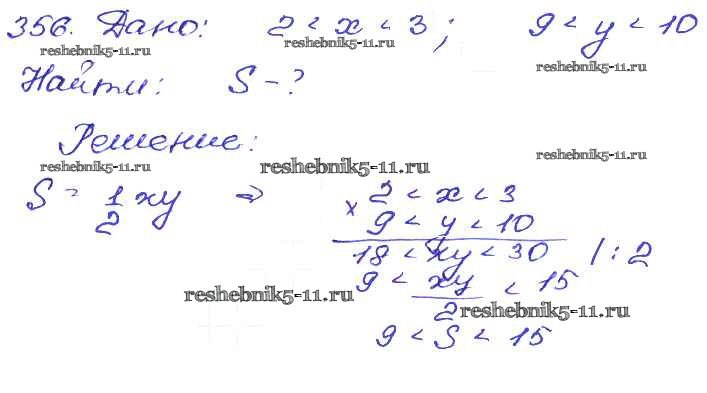 356. Дано: 2 < x < 3; 9 < y < 10
reshebnik5-11.ru reshebnik5-11.ru reshebnik5-11.ru
Найти: S - ?
Решение:
reshebnik5-11.ru reshebnik5-11.ru reshebnik5-11.ru
S = 1/2 xy => × 2 < x < 3
9 < y < 10
18 < xy < 30 | : 2
9 < xy/2 < 15
reshebnik5-11.ru reshebnik5-11.ru
9 < S < 15